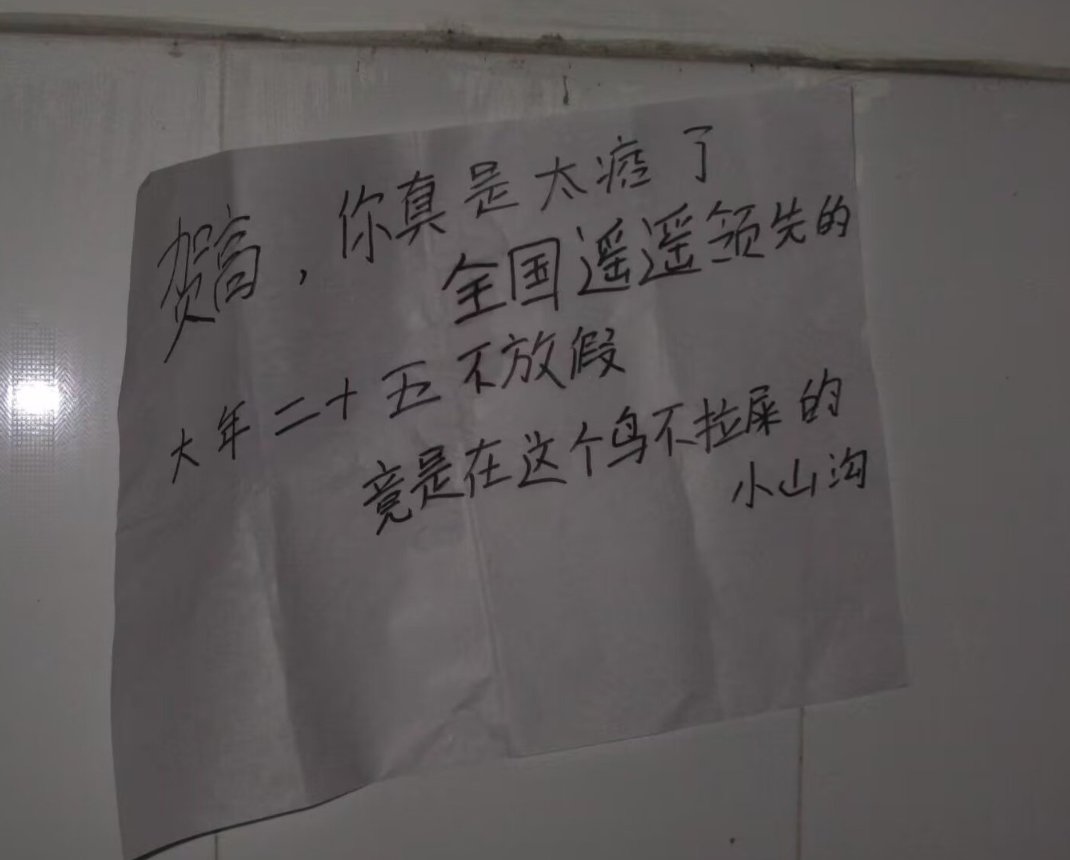 贺高，你真是太癌了
全国遥遥领先的
大年二十五不放假
竟是在这个鸟不拉屎的
小山沟